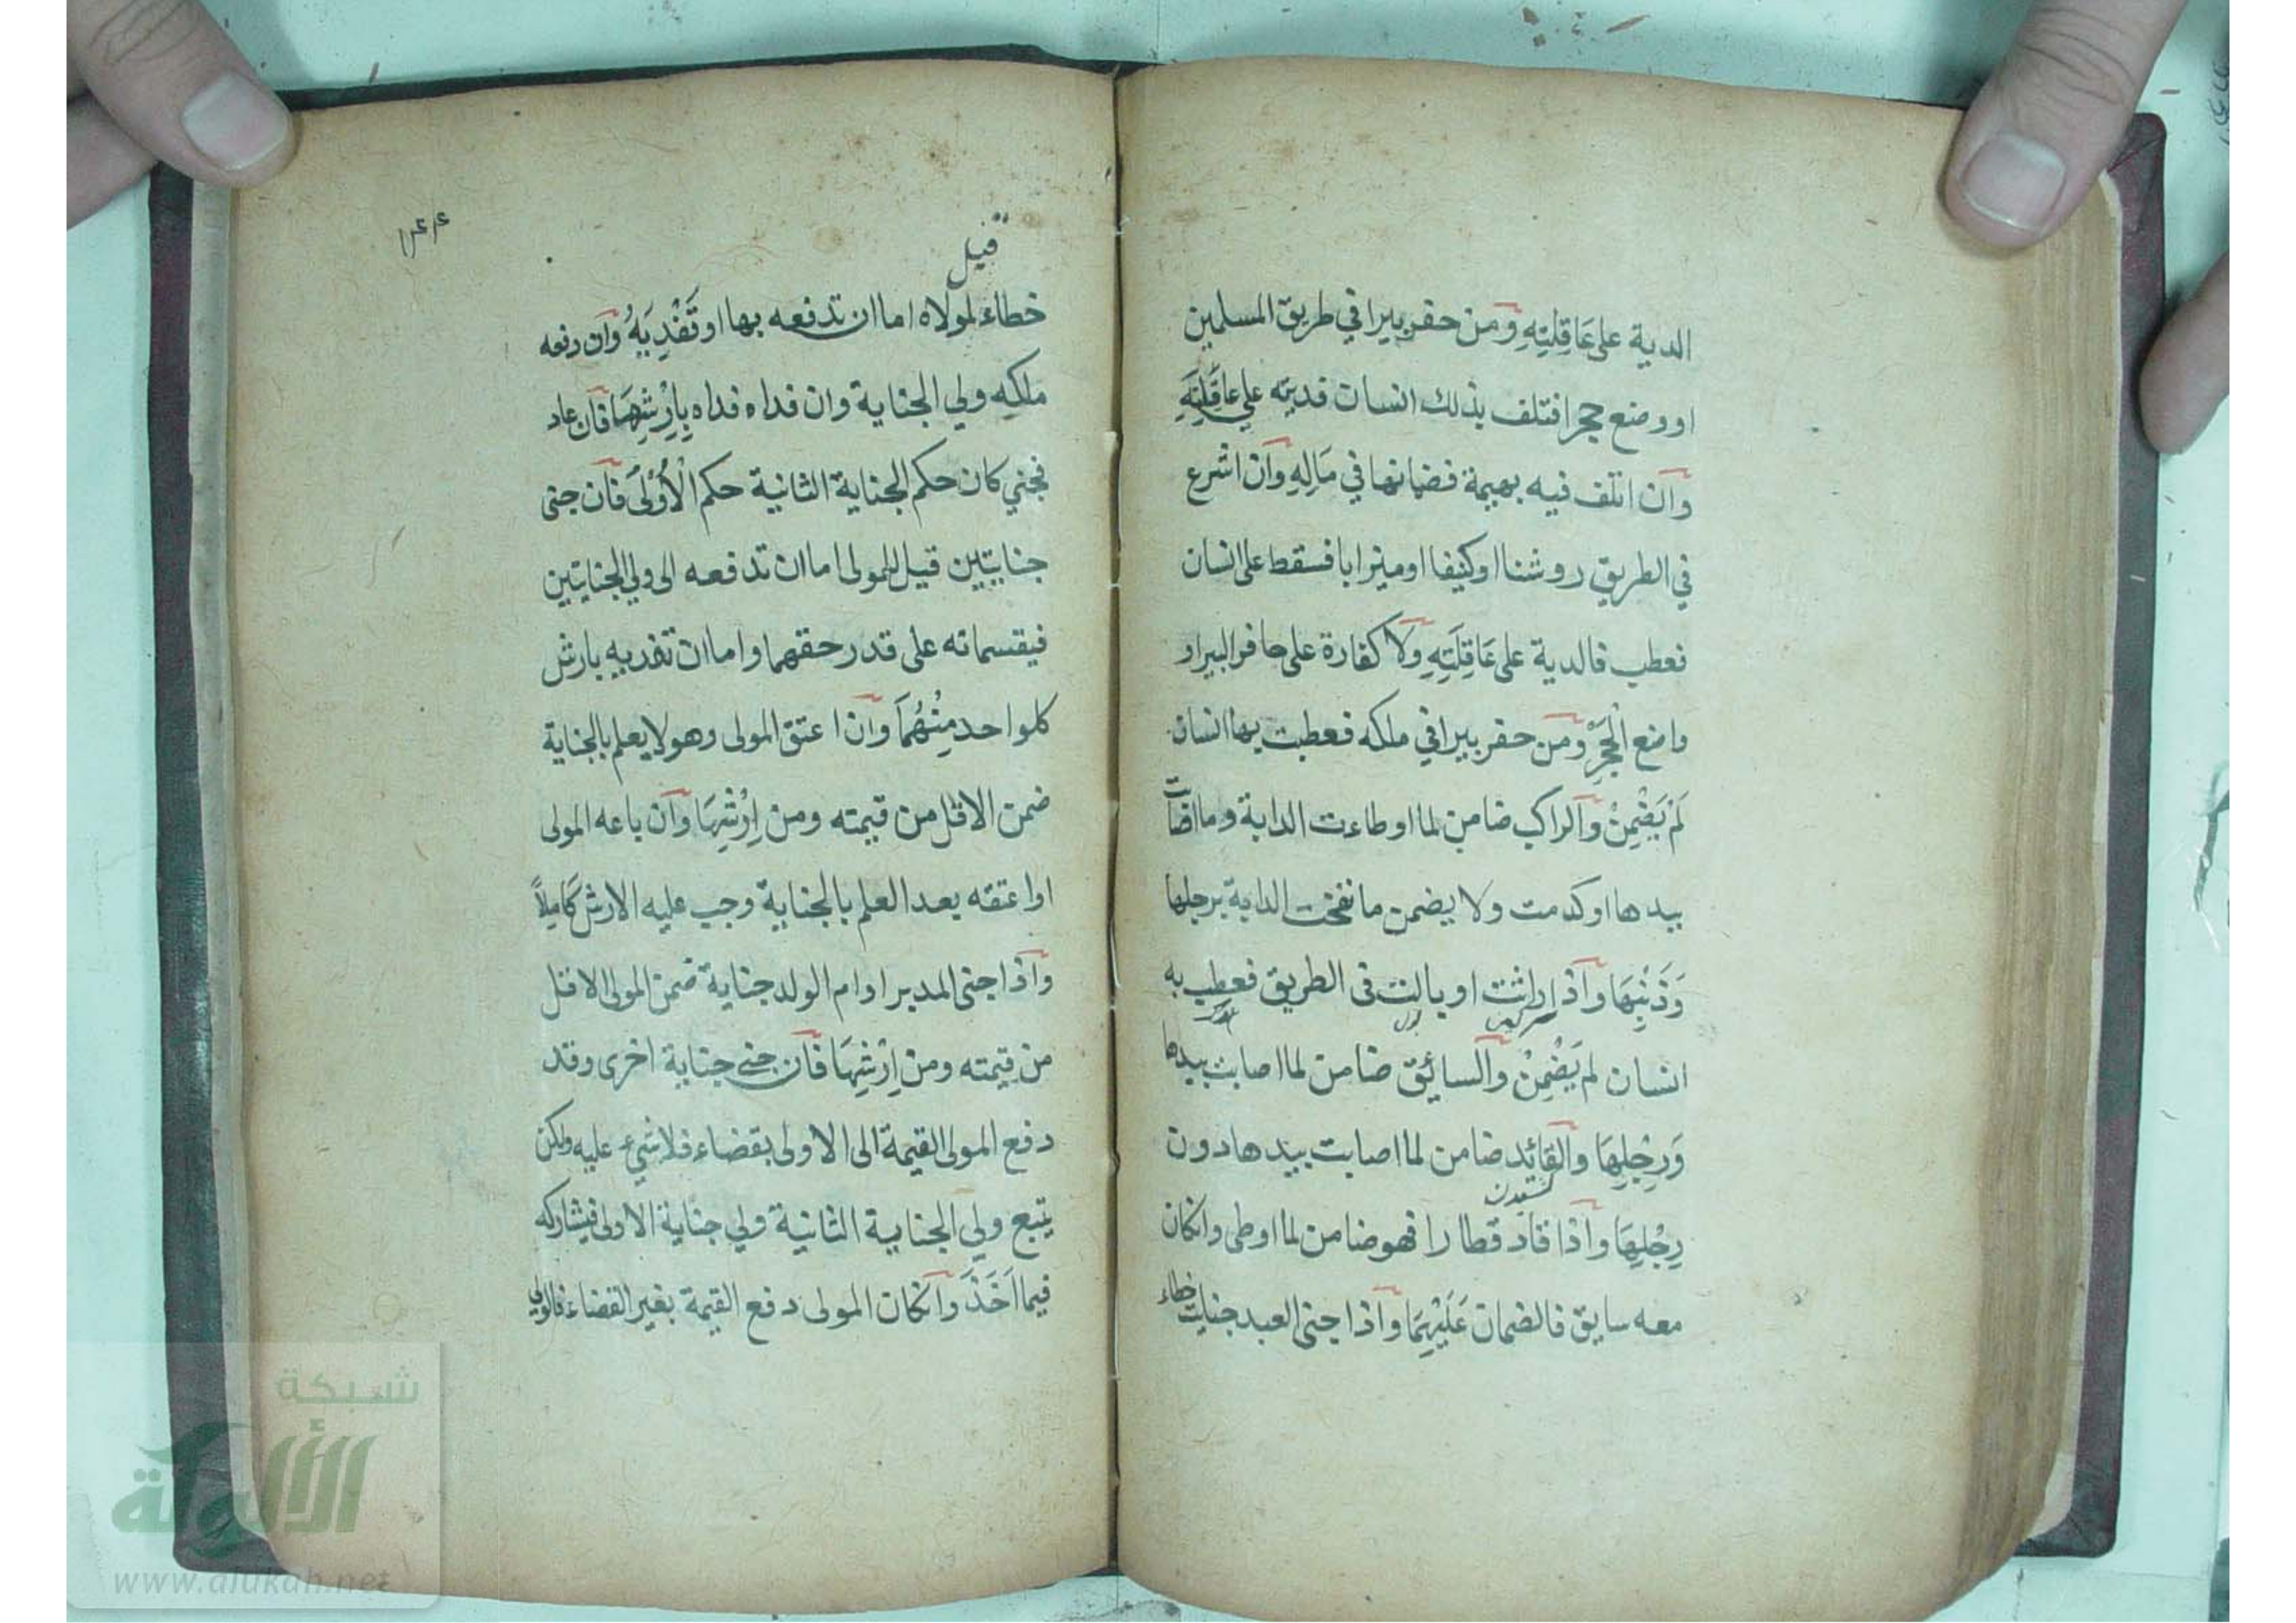 الدية على عَاقِلَتِهِ وَمن حفر بيرا في طريق المسلمين
او وضع حجرا فتلف بذلك انسان فديته علي عاقَلِتَهِ
وان اتلف فيه بهيمة فضمانها في مَالِهِ وان اشرع
في الطريق روشنا او كنيفا او ميزابا فسقط على انسان
فعطب فالدية على عَاقِلَتِهِ ولا كفارة على حافر البير او
واضع الْحَجَرِ ومن حفر بيرا في ملكه فعطبت بها انسان
لَمْ يَضْمِنْ والراكب ضامن لما اوطاءت الدابة وما اصابت
بيدها او كدمت ولا يضمن ما نفخت الدابة برجلها
وَذَنْبِهَا واذا راثت او بالت في الطريق فعطب به
انسان لم يَضْمِنْ والسائق ضامن لما اصابت بيدها
وَرِجْلِهَا والقائد ضامن لما اصابت بيدها دون
رِجْلِهَا واذا قاد قطارا فهو ضامن لما اوطى وانكان
معه سايق فالضمان عَلَيْهِمَا واذا جنى العبد جنايت خطاء
قيل
خطاء لمولاه اما ان تدفعه بها او تَفْدِيَهُ وان دفعه
ملكه ولي الجناية وان فداه فداه بِاِرْشِهَا فان عاد
فجني كان حكم الجناية الثانية حكم الْاُوْلَى فان جنى
جنايتين قيل للمولى اما ان تدفعه الى ولي الجنايتين
فيقتسمانه على قدر حقهما واما ان تفديه بارش
كلواحد مِنْهُمَا وان اعتق المولى وهو لا يعلم بالجناية
ضمن الاقل من قيمته ومن اِرْشِهَا وان باعه المولى
او اعتقه بعد العلم بالجناية وجب عليه الارش كَامِلاً
واذا جنى المدبر او ام الولد جناية ضمن المولى الاقل
من قيمته ومن اِرْشِهَا فان جنى جناية اخرى وقد
دفع المولى القيمة الى الاولى بقضاء فلا شيء عليه ولكن
يتبع ولي الجناية الثانية ولي جناية الاولى فيشاركه
فيما اَخَذَ وانكان المولى دفع القيمة بغير القضاء فالولي
شبكة
الألوكة
www.alukah.net